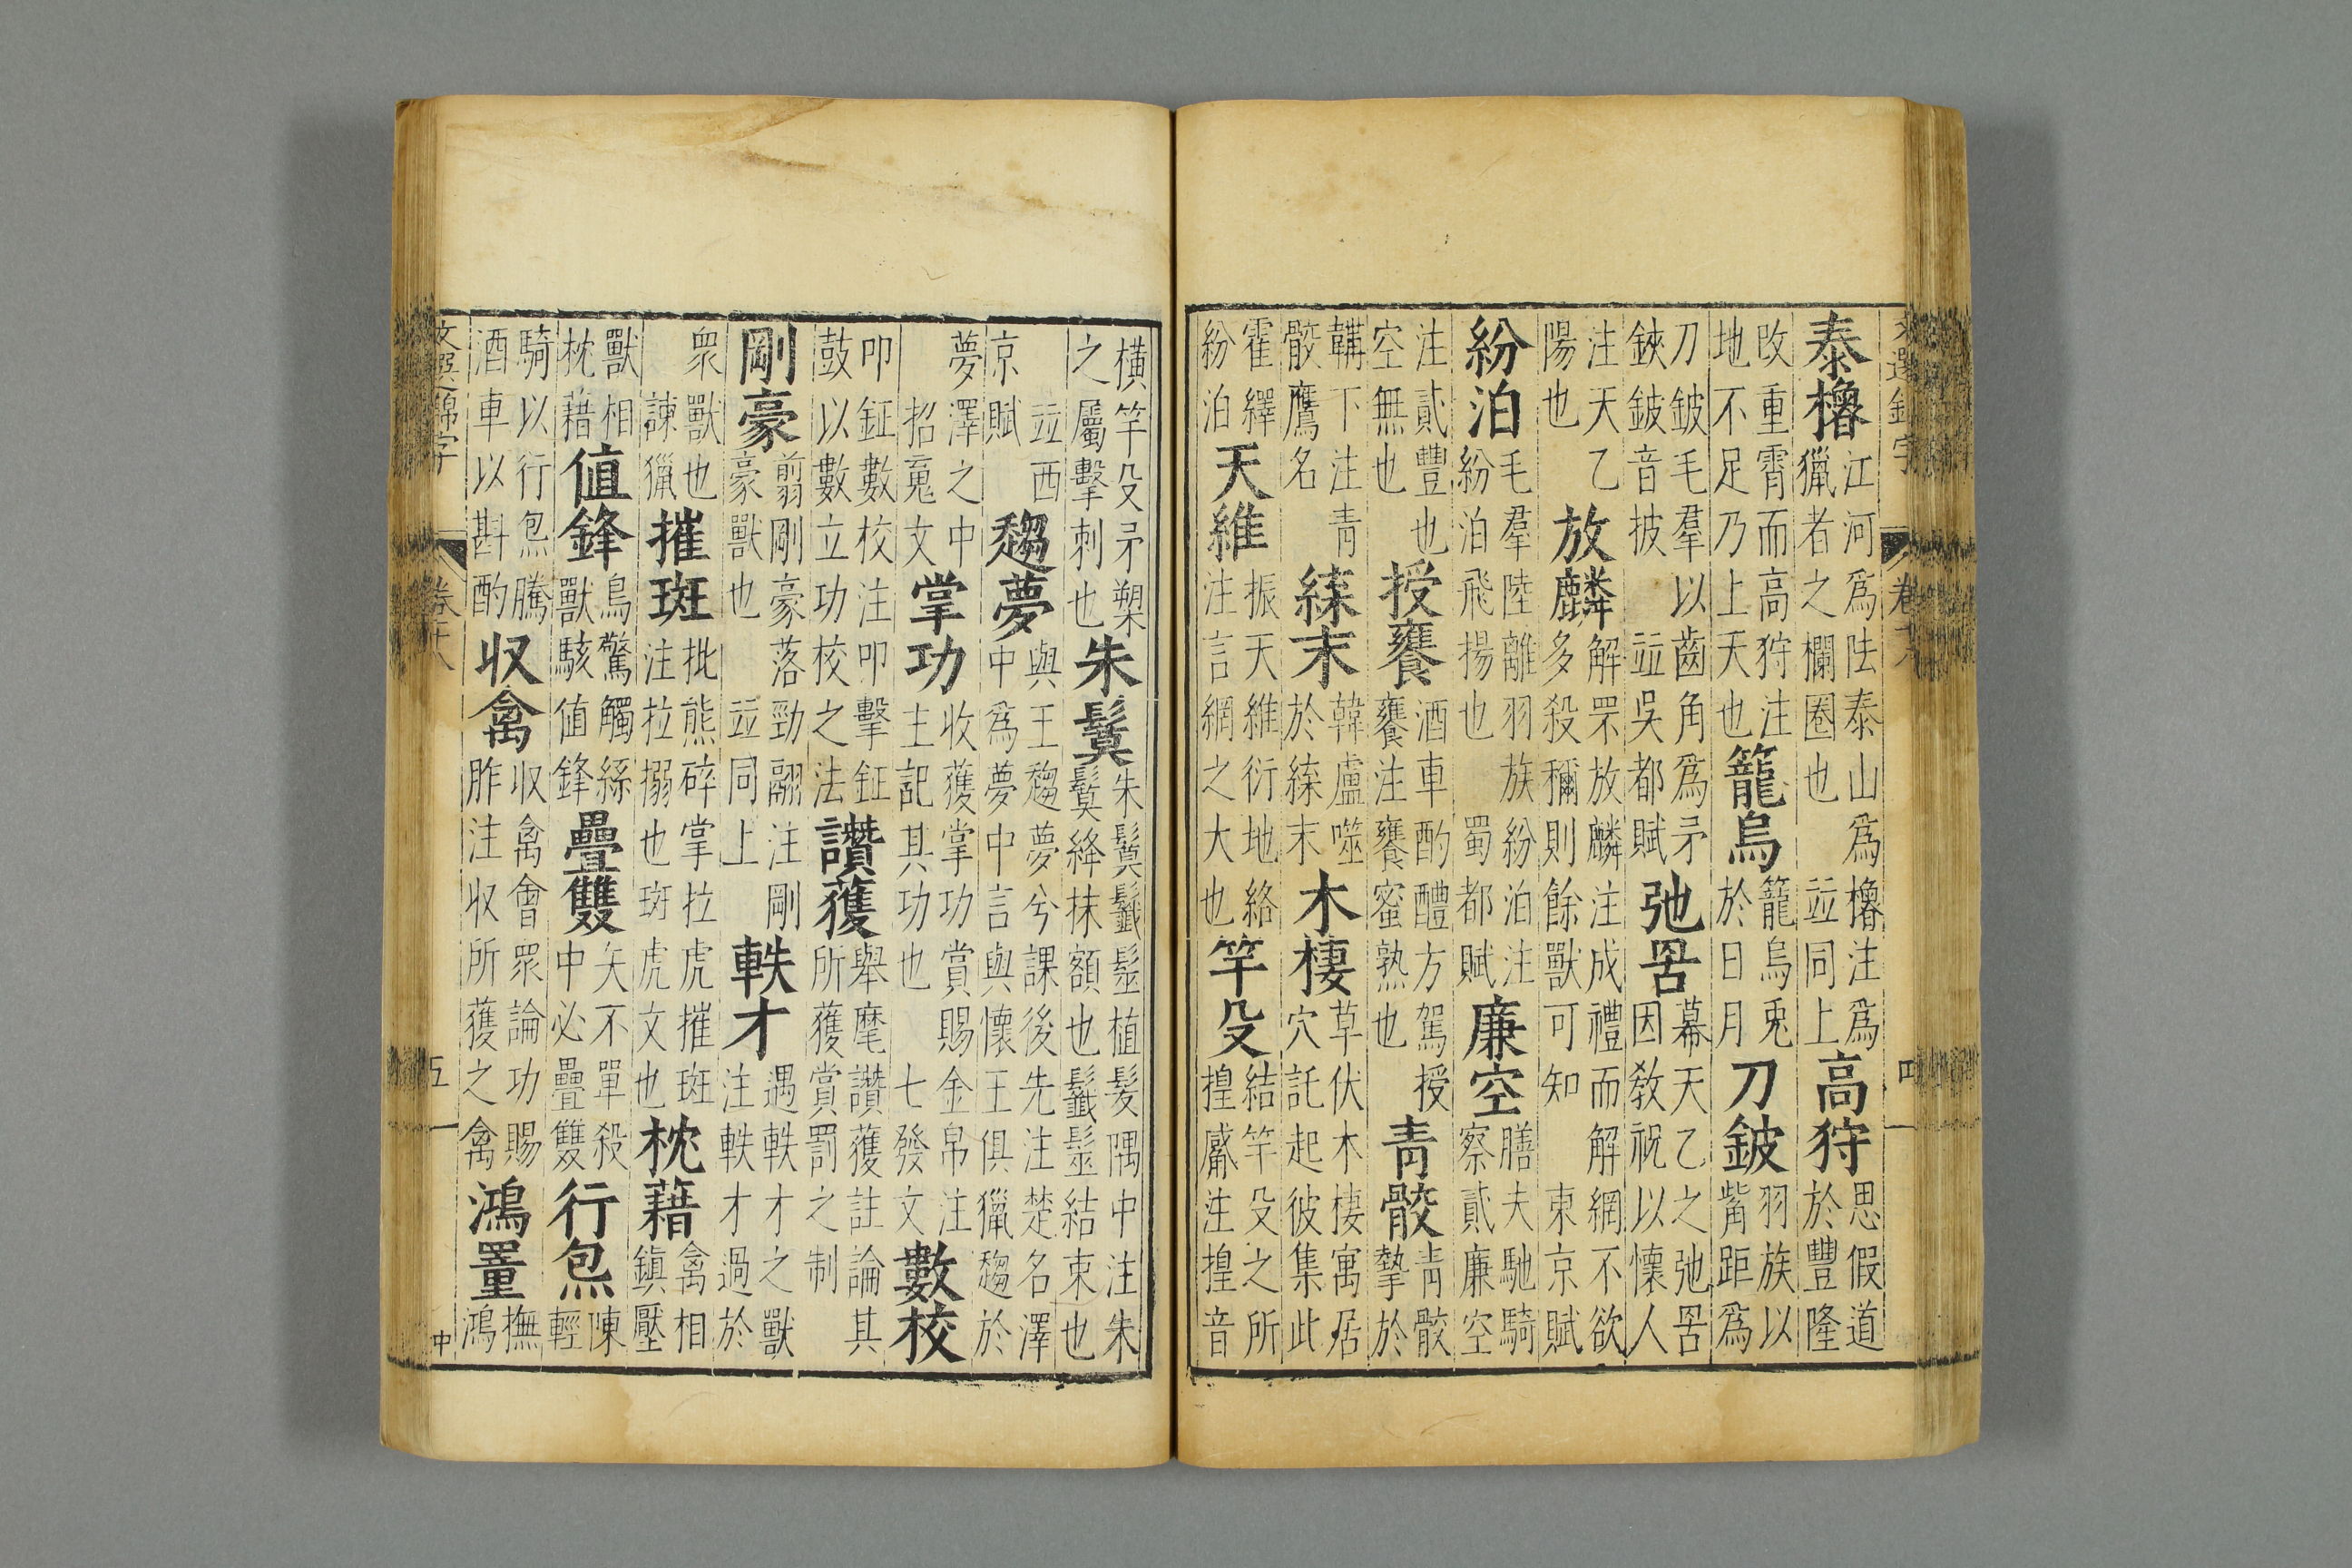 文選錦字 卷十八 四
泰櫓江河為阹泰山為櫓注為獵者之欄圈也 竝同上高狩思假道於豐隆
攺重霄而高狩注地不足乃上天也籠烏籠烏兎於日月刀鈹羽族以觜距為
刀鈹毛羣以齒角為矛鋏鈹音披 竝吳都賦弛罟幕天乙之弛罟因教祝以懷人
注天乙陽也放麟解罘放麟注成禮而解網不欲多殺獮則餘獸可知 東京賦
紛泊毛羣陸離羽族紛泊注紛泊飛揚也 蜀都賦廉空膳夫馳騎察貳廉空
注貳豐也空無也授饔酒車酌醴方駕授饔注饔蜜熟也青骹青骹摯於
鞲下注青骹鷹名緤末韓盧噬於緤末木棲草伏木棲寓居穴託起彼集此
霍繹紛泊天維振天維衍地絡注言網之大也竿殳結竿殳之所揘觱注揘音
橫竿殳矛槊之屬擊刺也朱鬕朱鬕鬣髽植髮隅中注朱鬕絳抹額也鬣髽結束也
竝西京賦趨夢與王趨夢兮課後先注楚名澤中為夢中言與懷王俱獵趨於
夢澤之中 招䰟文掌功收獲掌功賞賜金帛注主記其功也 七發文數校
叩鉦數校注叩擊鉦鼓以數立功校之法讚獲舉麾讚獲註論其所獲賞罰之制
剛豪翦剛豪落勁翮注剛豪獸也 竝同上軼才遇軼才之獸注軼才過於
衆獸也 諫獵摧斑批熊碎掌拉虎摧斑注拉搦也斑虎文也枕藉禽相鎮壓
獸相枕藉值鋒鳥驚觸絲獸駭值鋒疊雙矢不單殺中必疊雙行炰陳輕
騎以行炰騰酒車以斟酌収禽収禽會眾論功賜胙注収所獲之禽鴻置撫鴻
文選錦字 卷十八 五 中